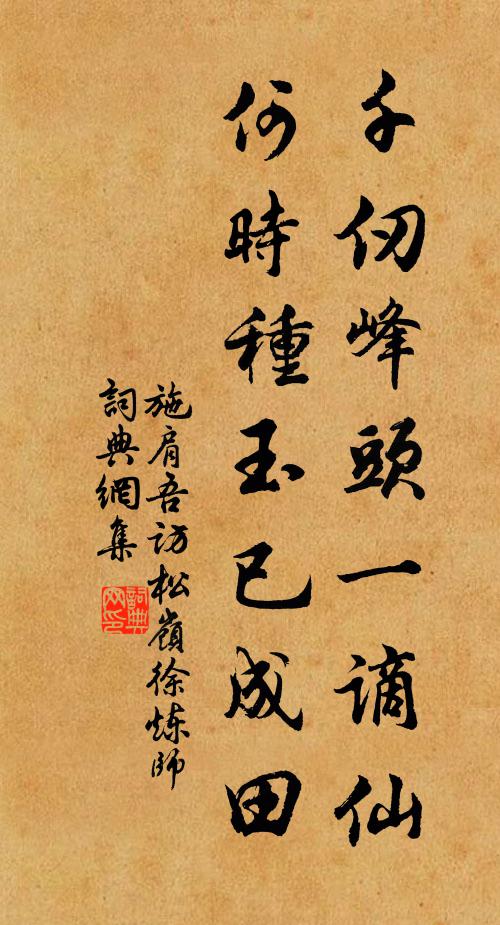 千仞峰頭一謫仙
何時種玉已成田
施肩吾訪松嶺徐煉師
詞典網集
詞典
网印